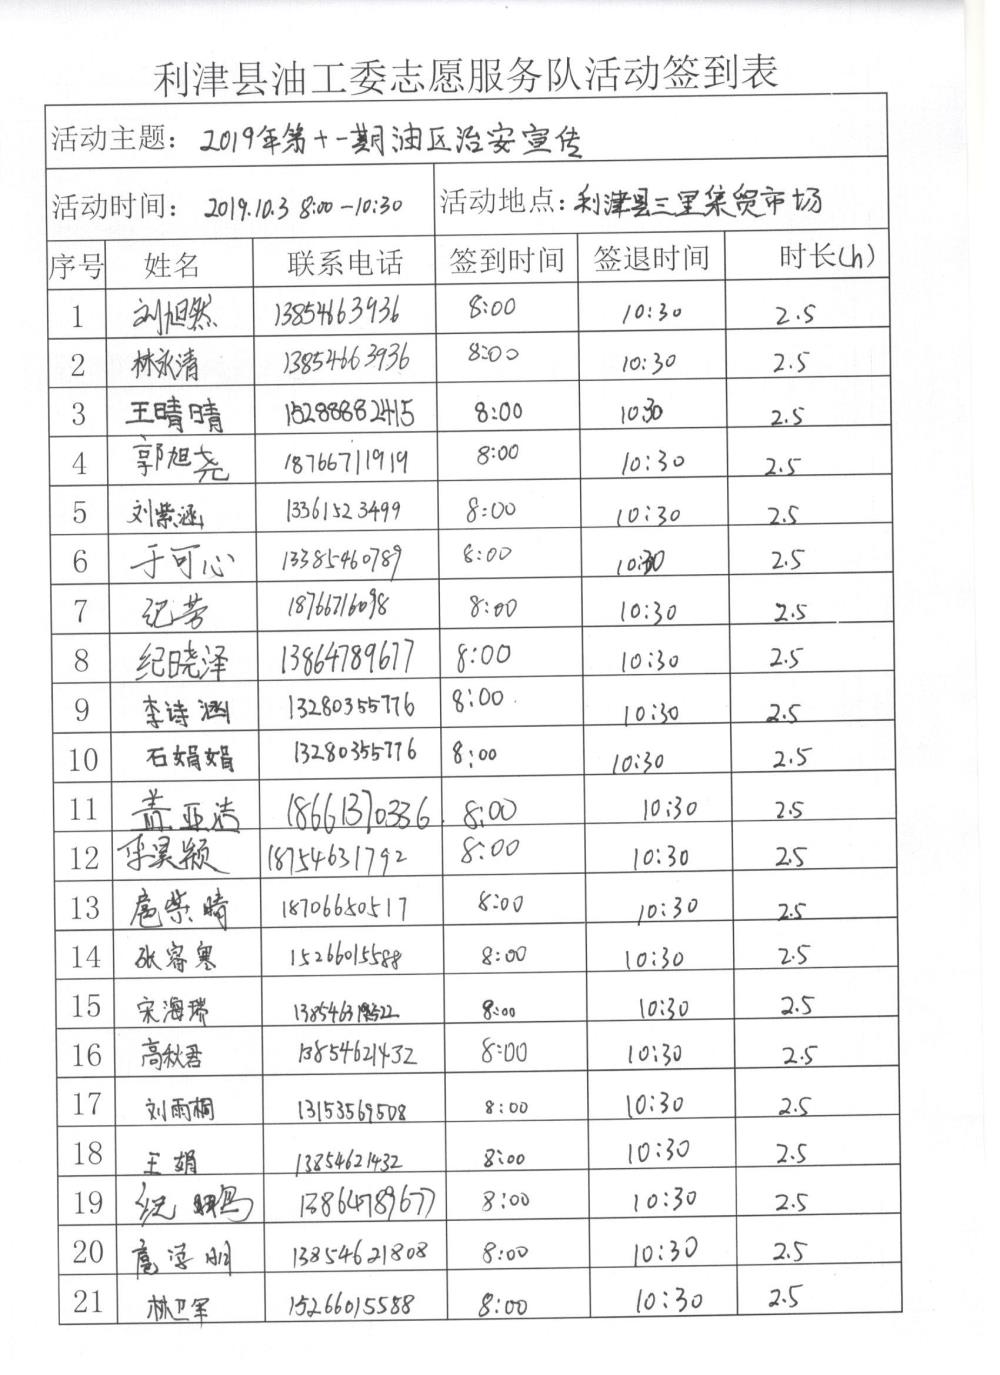 利津县油工委志愿服务队活动签到表
活动主题: 2019年第十一期油区治安宣传
活动时间: 2019.10.3 8:00-10:30 活动地点: 利津县三里集贸市场
序号 姓名 联系电话 签到时间 签退时间 时长(h)
1 刘旭然 13854663936 8:00 10:30 2.5
2 林永清 13854663936 8:00 10:30 2.5
3 王晴晴 15288882415 8:00 10:30 2.5
4 郭旭尧 18766711919 8:00 10:30 2.5
5 刘紫涵 13361523499 8:00 10:30 2.5
6 于可心 13385460789 8:00 10:30 2.5
7 纪芳 18766716098 8:00 10:30 2.5
8 纪晓泽 13864789677 8:00 10:30 2.5
9 李诗涵 13280355776 8:00 10:30 2.5
10 石娟娟 13280355776 8:00 10:30 2.5
11 盖亚洁 18661370336 8:00 10:30 2.5
12 18754631792 8:00 10:30 2.5
13 扈紫晴 18706650517 8:00 10:30 2.5
14 张容寒 15266015588 8:00 10:30 2.5
15 宋海瑞 8:00 10:30 2.5
16 高秋君 13854621432 8:00 10:30 2.5
17 刘雨桐 13153569508 8:00 10:30 2.5
18 王娟 13854621432 8:00 10:30 2.5
19 13864789677 8:00 10:30 2.5
20 13854621808 8:00 10:30 2.5
21 林卫军 15266015588 8:00 10:30 2.5